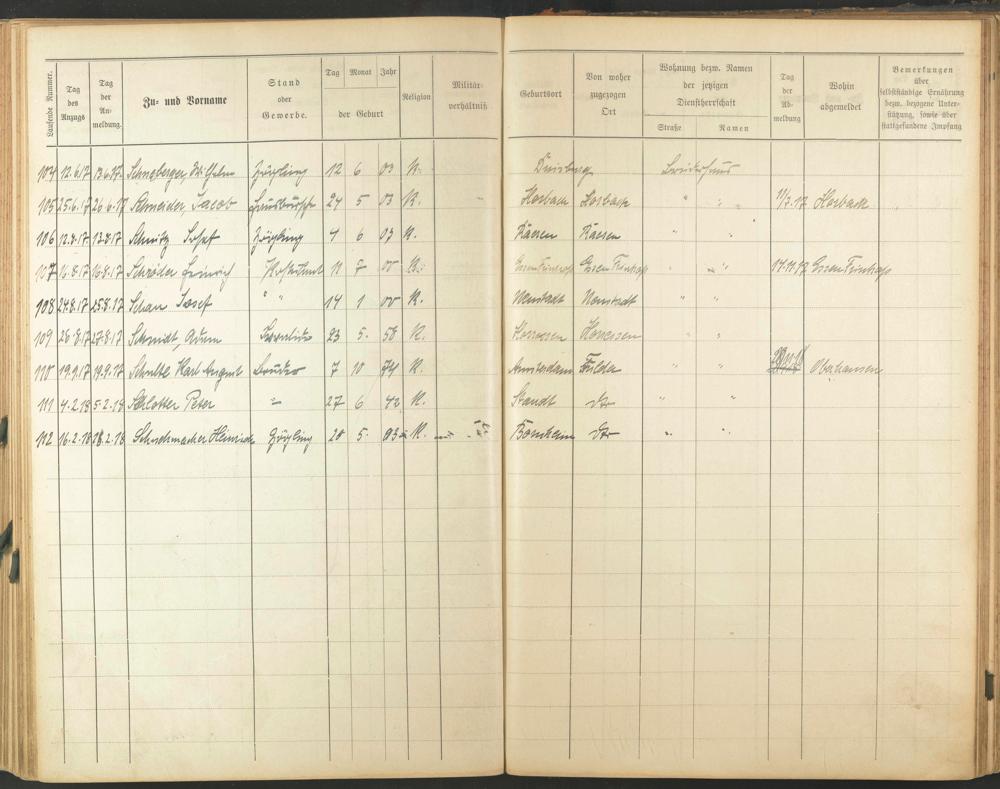 Laufende Nummer. Tag des Anzugs Tag der Anmeldung. Zu- und Vorname Stand oder Gewerbe. Tag Monat Jahr der Geburt Religion Militärverhältnis Geburtsort Von woher zugezogen Ort Wohnung bezw. Namen der jetzigen Dienstherrschaft Straße Namen Tag der Abmeldung Wohin abgemeldet Bemerkungen über selbstständige Ernährung bezw. bezogene Unterstützung, sowie über stattgefundene Impfung
104 12.6.17 13.6.17. Schneberger, Wilhelm Zögling 12 6 03 K. Duisburg
105 25.6.17 26.6.17 Schneider, Jacob Hausbursche 24 5 03 K. Horbach Horbach " " 1/7.17 Horbach
106 12.8.17 13.8.17 Schmitz Josef Zögling 4 6 03 K. Kaesen Kaesen " "
107 16.8.17 16.8.17 Schröder Heinrich 11 7 00 K. Essen Essen " " 17.11.17 Essen
108 24.8.17 25.8.17 Schan Josef " " 14 1 00 K. Neustadt Neustadt " "
109 26.8.17 27.8.17 Schmidt, Adam 23 5. 58 K. " "
110 19.9.17 19.9.17 Schulte Karl August Bruder 7 10 74 K. Amsterdam Fulda " " Oberhausen
111 4.2.18 5.2.18 Schlotter Peter " 27 6 42 K. Staudt dto " "
112 16.2.18 18.2.18 Schuhmacher Heinrich Zögling 20 5. 03 K. Bornheim dto " "